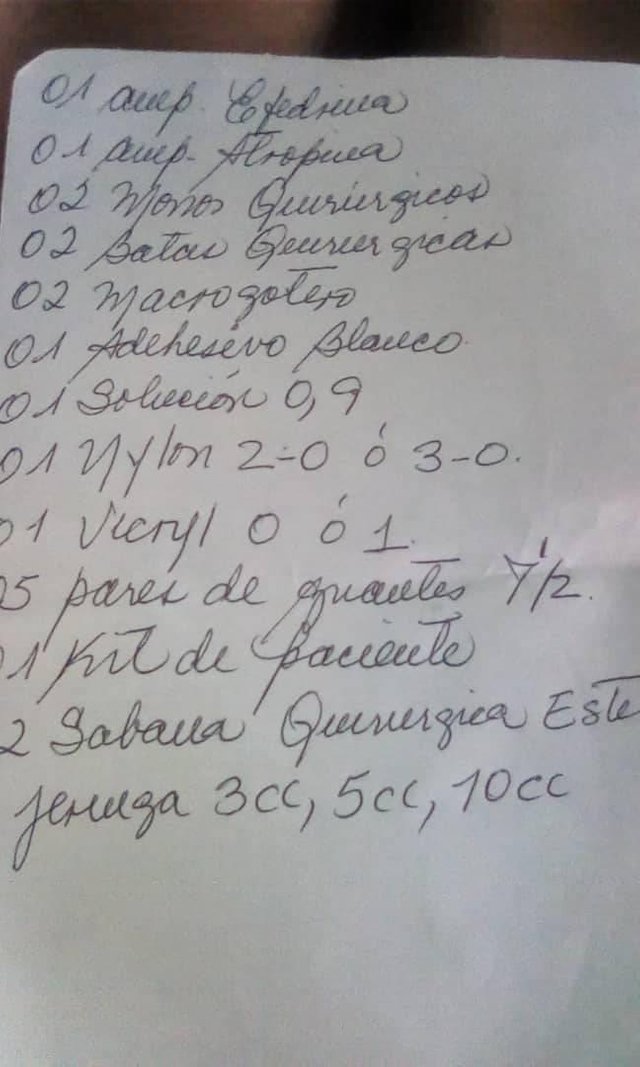 01 amp. Efedrina
01 amp. Atropina
02 Monos Quirúrgicos
02 Batas Quirurgicas
02 Macrogotero
01 Adehesivo Blanco
01 Solución 0,9
01 Nylon 2-0 ó 3-0.
01 Vicryl 0 ó 1.
05 pares de guantes 7 1/2.
01 Kit de paciente
2 Sabana Quirurgica Este
jeringa 3cc, 5cc, 10cc